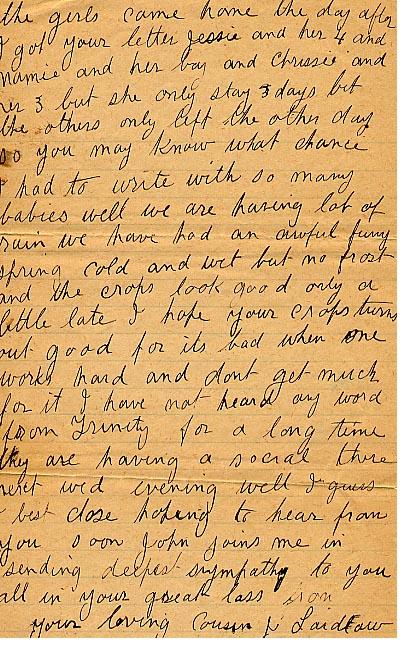 the girls came home the day after
I got your letter Jessie and her 4 and
mamie and her boy and Chrissie and
her 3 but she only stay 3 days but
the others only left the other day
so you may know what chance
I had to write with so many
babies well we are having lot of
rain we have had an awful funy
spring cold and wet but no frost
and the crops look good only a
little late I hope your crops turns
out good for its bad when one
works hard and dont get much
for it I have not heard any word
from Trinity for a long time
they are having a social there
next wed evening well I guess
I best close hoping to hear from
you soon John joins me in
sending deepest sympathy to you
all in your great loss from
your loving Cousin J Laidlaw